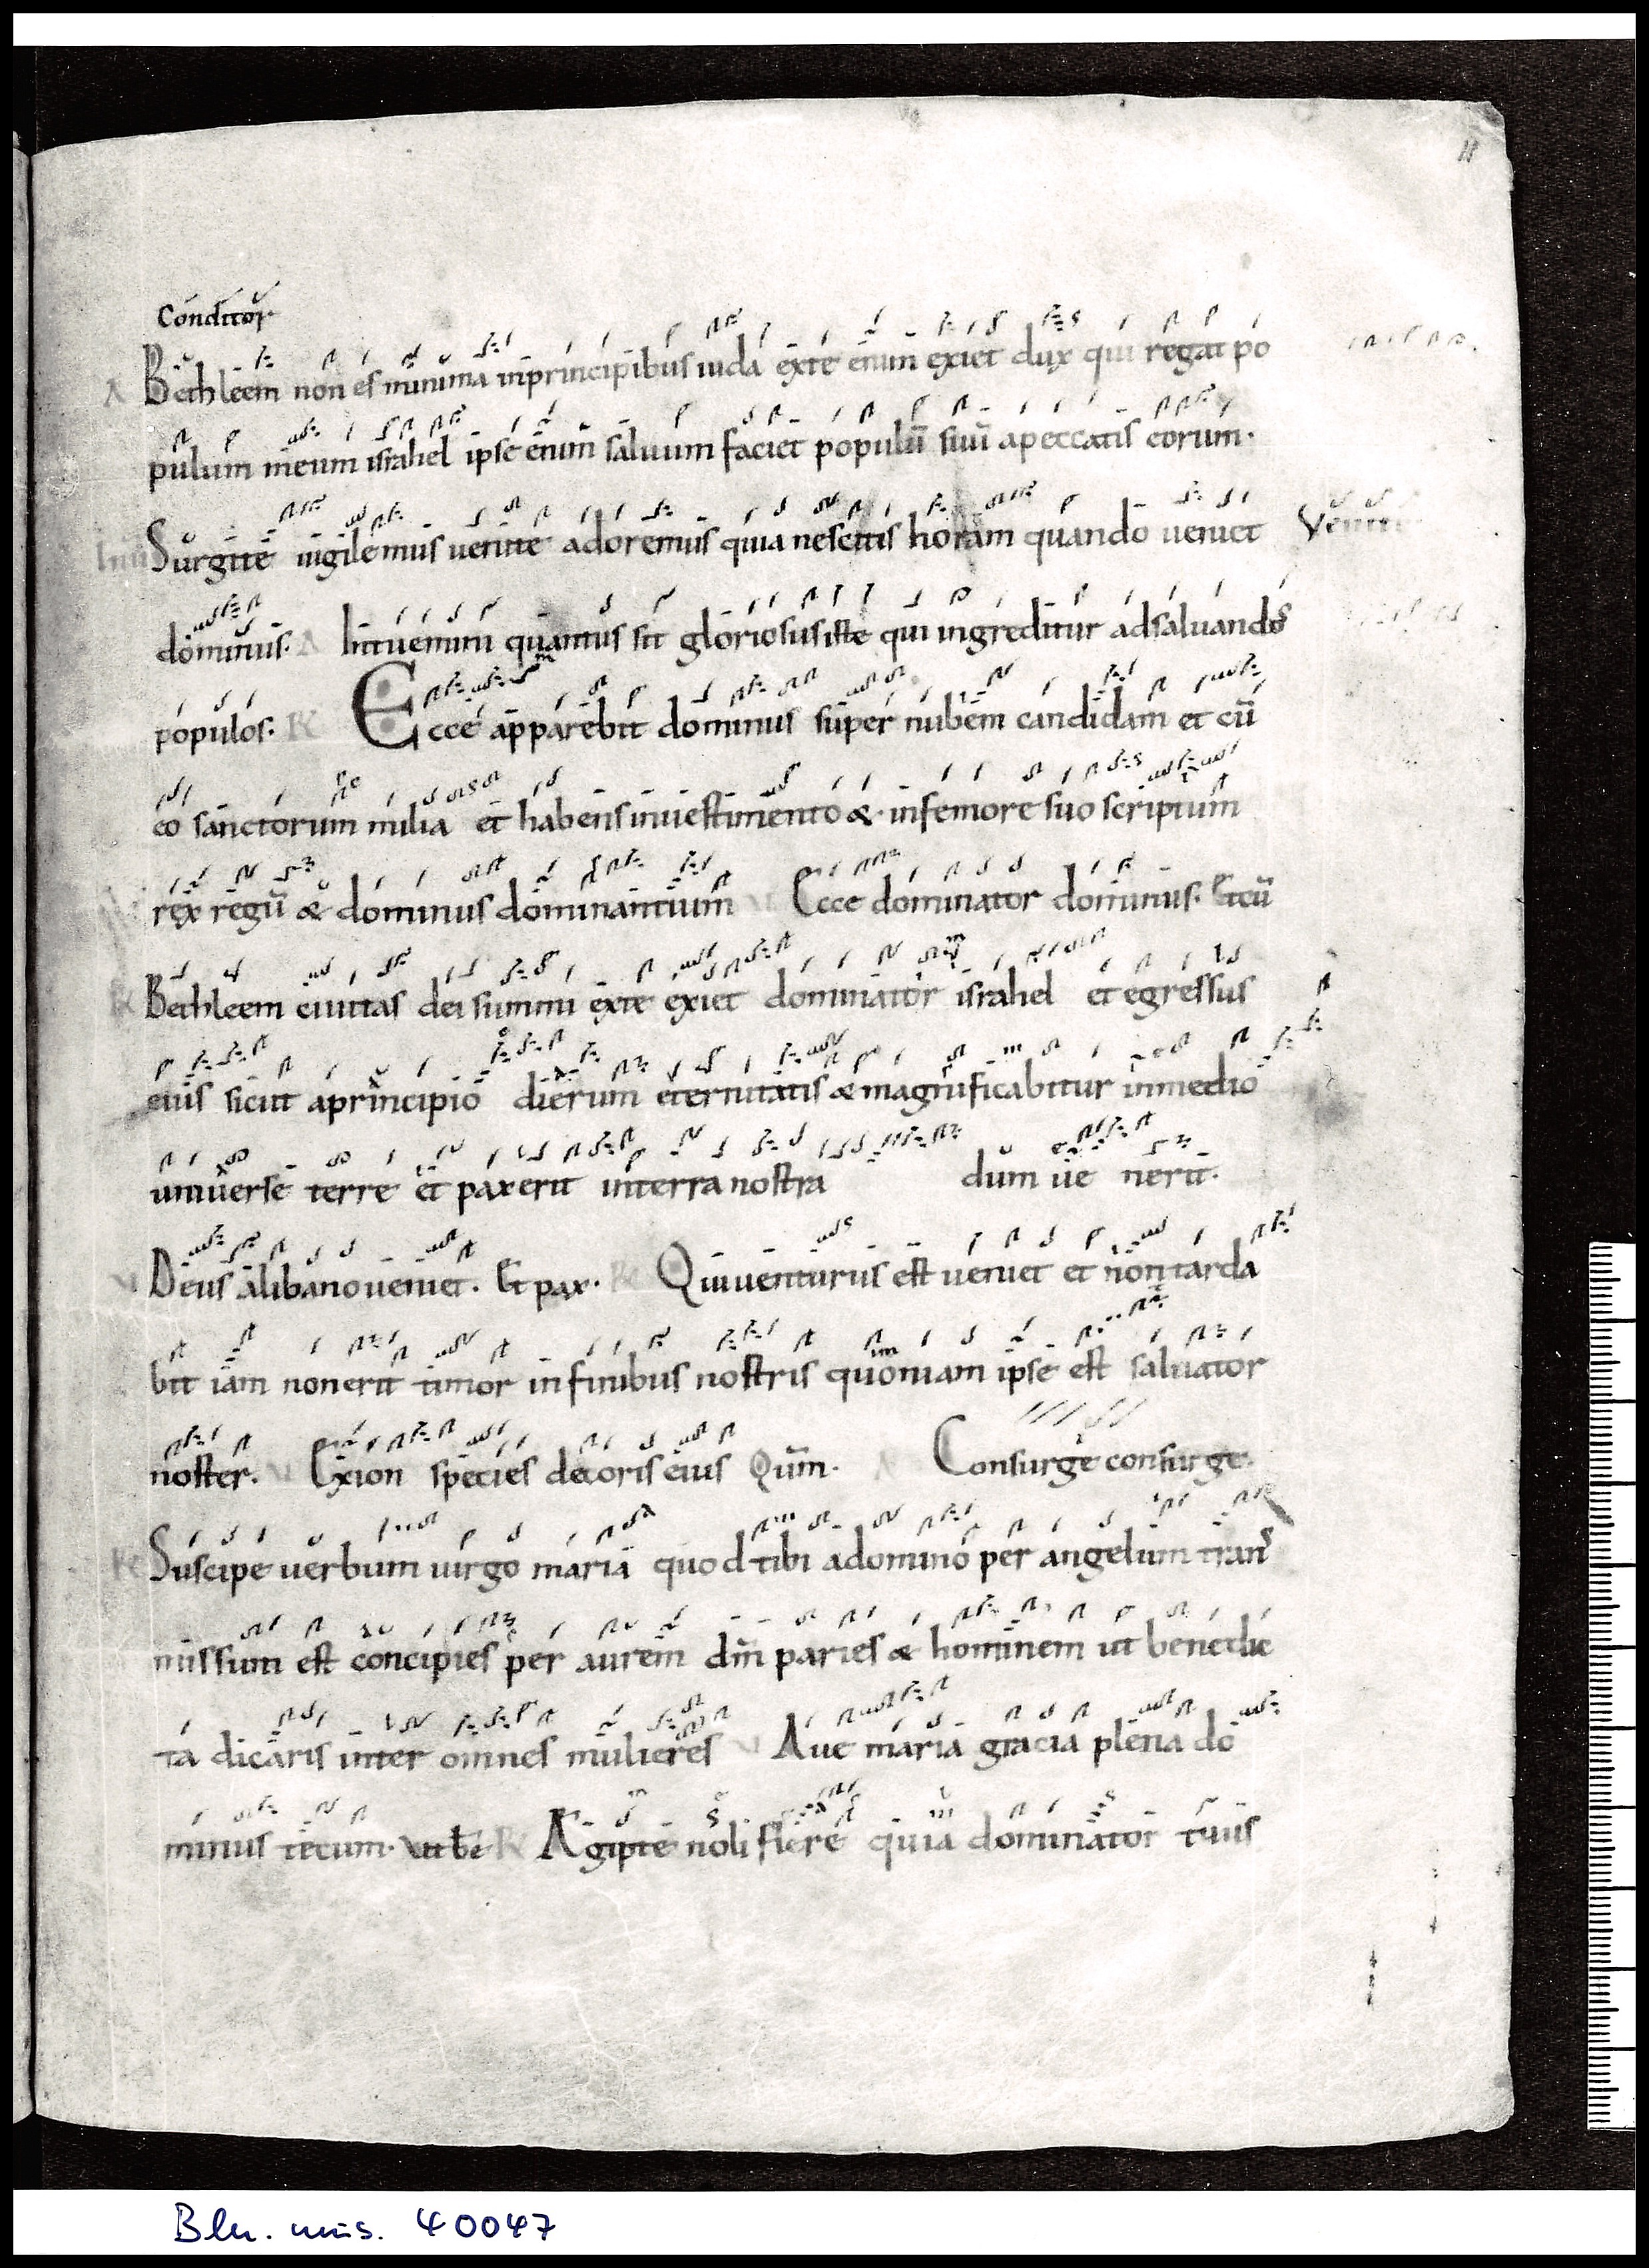 11
Conditor
A Bethleem non es minima inprincipibus iuda exte enim exiet dux qui regat po
pulum meum israhel ipse enim saluum faciet populū suū apeccatis eorum.
Inuit Surgite uigilemus uenite adoremus quia nescitis horam quando ueniet Venite
dominus. A Intuemini quantus sit gloriosus iste qui ingreditur adsaluandos
populos. R Ecce apparebit dominus super nubem candidam et cū
eo sanctorum milia et habens inuestimento & infemore suo scriptum
rex regū & dominus dominantium V Ecce dominator dominus. Etcū
R Bethleem ciuitas dei summi exte exiet dominator israhel et egressus
eius sicut aprincipio dierum eternitatis & magnificabitur inmedio
uniuerse terre et pax erit interra nostra dum ue nerit.
V Deus alibano ueniet. Et pax. R Qui uenturus est ueniet et non tarda
bit iam non erit timor in finibus nostris quoniam ipse est saluator
noster. V Exion species decoris eius Qūm. A Consurge consurge.
R Suscipe uerbum uirgo maria quod tibi adomino per angelum trans
missum est concipies per aurem dm̄ paries & hominem ut benedic
ta dicaris inter omnes mulieres V Aue maria gracia plena do
minus tecum. ut be R Agipte noli flere quia dominator tuus
Bln. mus. 40047